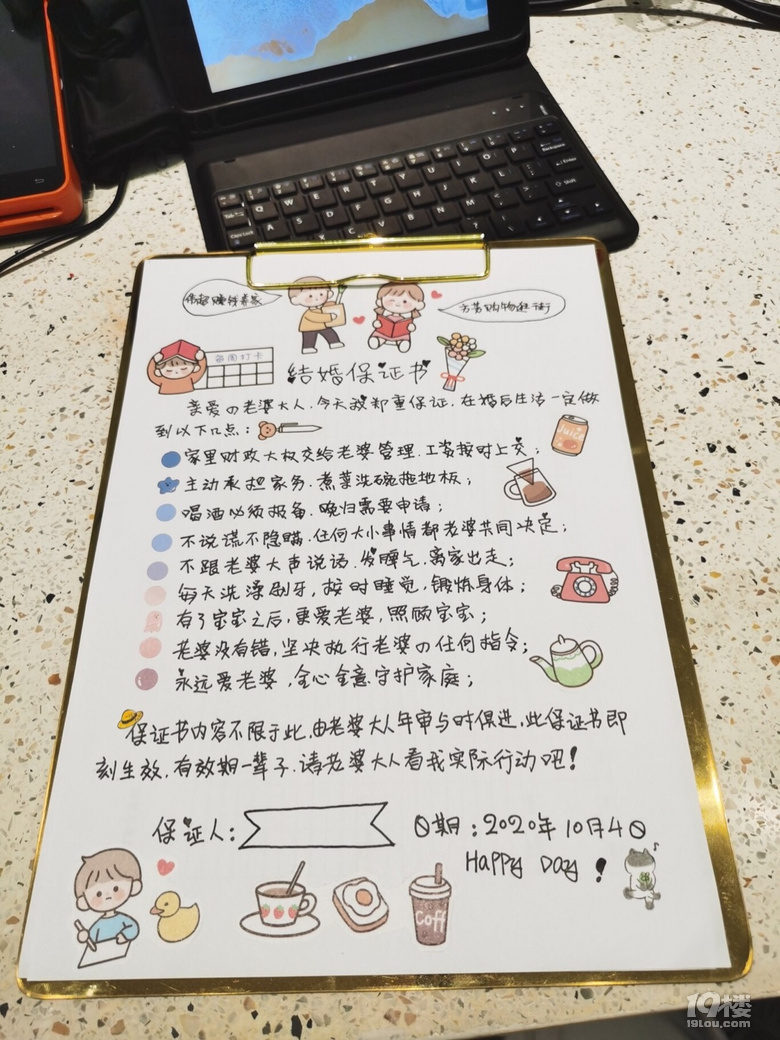 Q W E R T Y U I O P
A S D F G H J K L
X C V B N M
Backspace
Enter
Shift
Tab
Caps Lock
赚钱养家
购物逛街
每周打卡
结婚保证书
亲爱の老婆大人，今天我郑重保证，在婚后生活一定做
到以下几点：
家里财政大权交给老婆管理，工资按时上交；
主动承担家务，煮菜洗碗拖地板；
喝酒必须报备，晚归需要申请；
不说谎不隐瞒，任何大小事情都老婆共同决定；
不跟老婆大声说话，发脾气，离家出走；
每天洗澡刷牙，按时睡觉，锻炼身体；
有了宝宝之后，更爱老婆，照顾宝宝；
老婆没有错，坚决执行老婆の任何指令；
永远爱老婆，全心全意守护家庭；
保证书内容不限于此，由老婆大人年审与时俱进，此保证书即
刻生效，有效期一辈子，请老婆大人看我实际行动吧！
保证人：
日期：2020年10月4日
Happy Day！
Juice
Coff
19楼
19lou.com